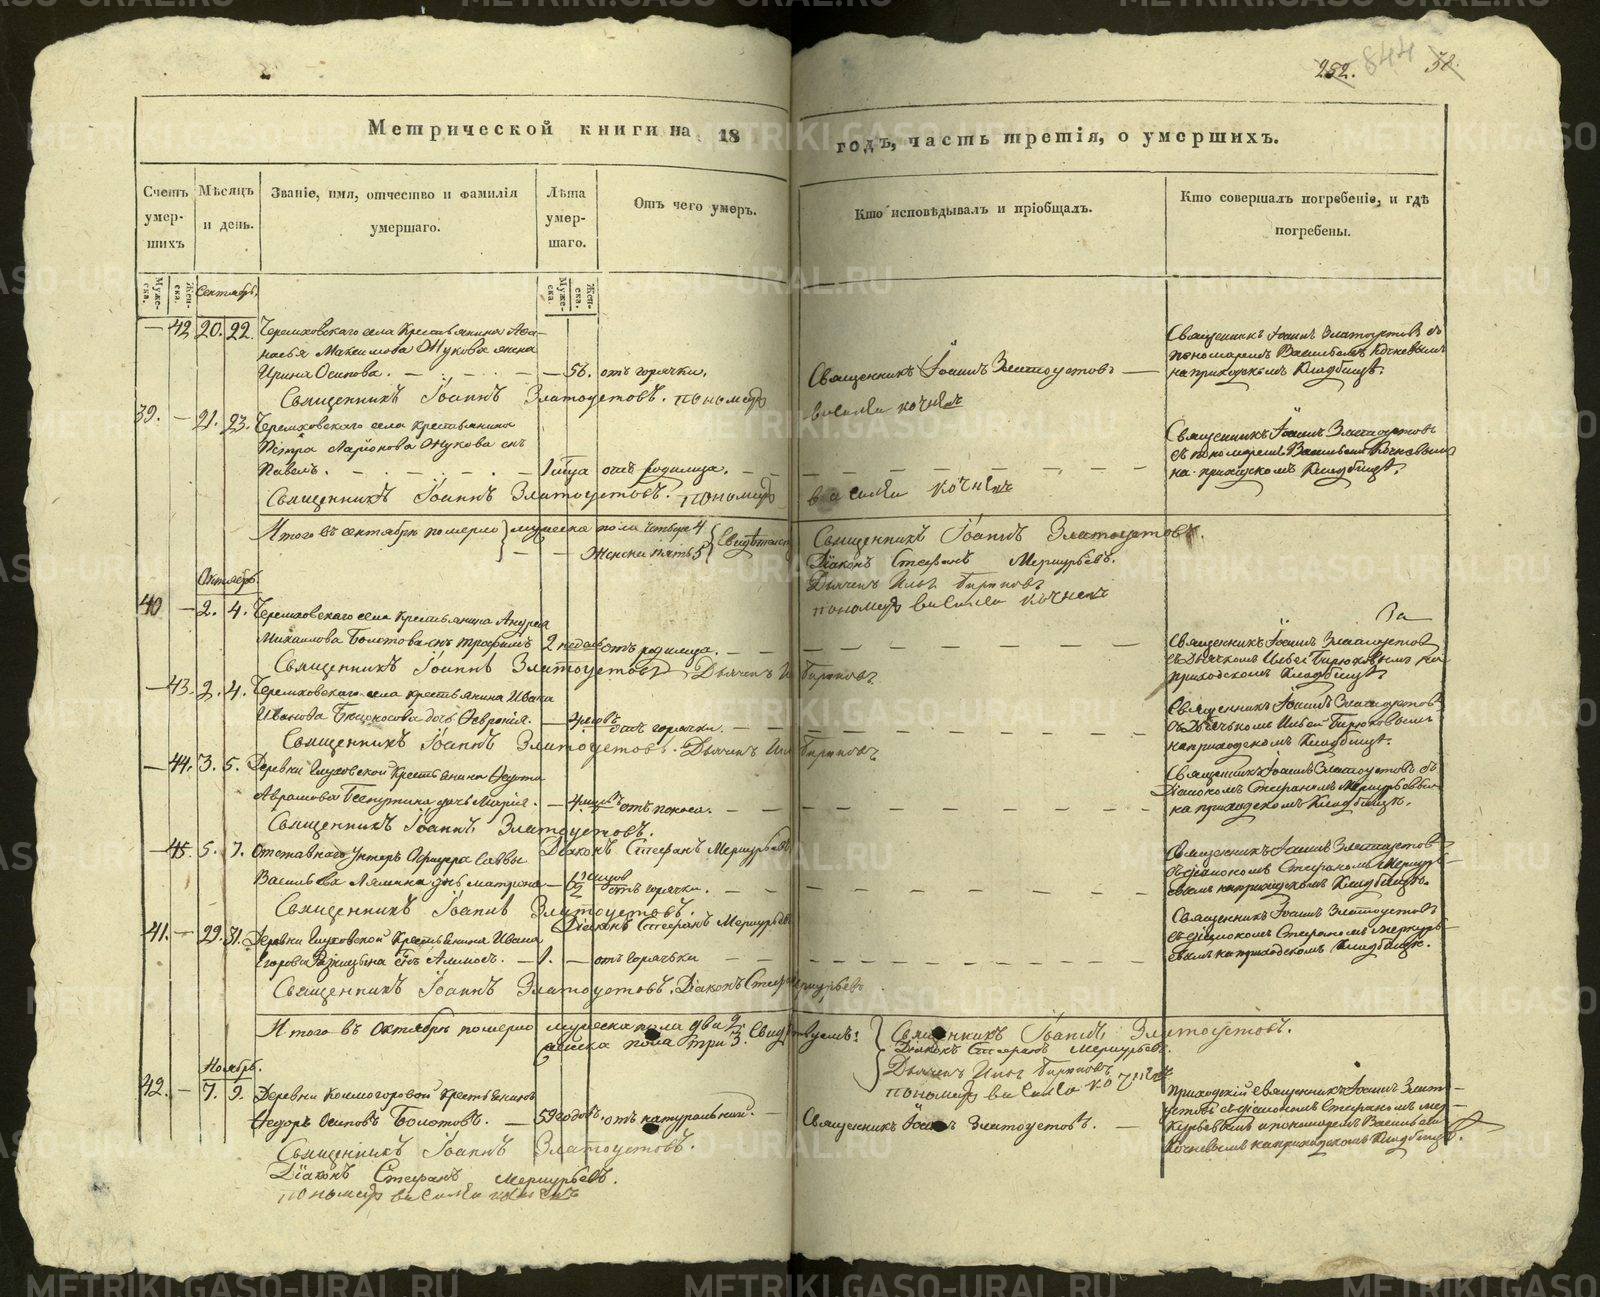 252. 844 58.
Метрической книги на 18 годъ, часть третія, о умершихъ.
Счетъ умер- шихъ
Мѣсяцъ и день.
Званіе, имя, отчество и фамилія умершаго.
Лѣта умер- шаго.
Отъ чего умеръ.
Кто исповѣдывалъ и пріобщалъ.
Кто совершалъ погребеніе, и гдѣ погребены.
Муже- ска. Жен- ска.
Муже- ска. Жен- ска.
Сентябрь.
— 42 20. 22. Черемховскаго села Крестьянина Афа-
насья Максимова Жукова жена
Ирина Осипова. — 56. отъ горячки. Священникъ Іоаннъ Златоустовъ —
Священникъ Іоаннъ Златоустовъ съ
пономаремъ Васильемъ Кочневымъ
на приходскомъ Кладбищѣ.
Священникъ Іоаннъ Златоустовъ. пономарь василеи кочневъ
39. — 21. 23. Черемховскаго села крестьянина
Петра Ларіонова Жукова сынъ
Павелъ. 1 отъ родимца.
Священникъ Іоаннъ Златоустовъ
съ пономаремъ Васильемъ Кочневымъ
на приходскомъ Кладбищѣ.
Священникъ Іоаннъ Златоустовъ. пономарь василеи кочневъ
Итого въ сентябрѣ померло мужеска пола четверо 4
женска пять 5
Священникъ Іоаннъ Златоустовъ.
Діаконъ Стефанъ Меркурьевъ.
Дьячекъ Илья Бирюковъ
пономарь василеи кочневъ
Октябрь.
40 — 2. 4. Черемховскаго села крестьянина Андрея
Михаилова Болотова сынъ Трофимъ 2 недель отъ родимца.
Священникъ Іоаннъ Златоустовъ
съ Дьячкомъ Ильей Бирюковымъ на
приходскомъ Кладбищѣ.
Священникъ Іоаннъ Златоустовъ Дьячекъ Илья Бирюковъ
— 43. 2. 4. Черемховскаго села крестьянина Ивана
Иванова дочь Февронія. — 4 отъ горячки.
Священникъ Іоаннъ Златоустовъ
съ Дьячькомъ Ильей Бирюковымъ
на приходскомъ Кладбищѣ.
Священникъ Іоаннъ Златоустовъ. Дьячекъ Илья Бирюковъ
— 44. 3. 5. Деревни Глуховской Крестьянина
Аврамова дочь Марія. — 4 отъ поноса.
Священникъ Іоаннъ Златоустовъ съ
Діакономъ Стефаномъ Меркурьевымъ
на приходскомъ Кладбищѣ.
Священникъ Іоаннъ Златоустовъ.
Діаконъ Стефанъ Меркурьевъ
— 45. 5. 7. Отставнаго Унтеръ Офицера Саввы
Васильева Лямина дочь Матрона — отъ горячки.
Священникъ Іоаннъ Златоустовъ
съ діакономъ Стефаномъ Меркурь-
евымъ на приходскомъ Кладбищѣ.
Священникъ Іоаннъ Златоустовъ.
Діаконъ Стефанъ Меркурьевъ
41. — 29. 31. Деревни Глуховской Крестьянина Ивана
Егорова сынъ — 1. — отъ горячьки
Священникъ Іоаннъ Златоустовъ
съ діакономъ Стефаномъ Меркурь-
евымъ на приходскомъ Кладбищѣ.
Священникъ Іоаннъ Златоустовъ. Діаконъ Стефанъ Меркурьевъ
Итого въ Октябрѣ померло мужеска пола два 2
женска пола три 3. Свидѣтельствуемъ:
Священникъ Іоаннъ Златоустовъ.
Діаконъ Стефанъ Меркурьевъ.
Дьячекъ Илья Бирюковъ
пономарь василеи кочневъ
Ноябрь.
42. — 7. 9. Деревни Колмогоровой Крестьянинъ
Федоръ Осиповъ Болотовъ. — 59 годовъ. отъ натуральной. — Священникъ Іоаннъ Златоустовъ. —
Приходскій священникъ Іоаннъ Злато-
устовъ съ діакономъ Стефаномъ Мер-
курьевымъ и пономаремъ Васильемъ
Кочневымъ на приходскомъ Кладбищѣ.
Священникъ Іоаннъ Златоустовъ.
Діаконъ Стефанъ Меркурьевъ.
пономарь василеи кочневъ
METRIKI.GASO-URAL.RU